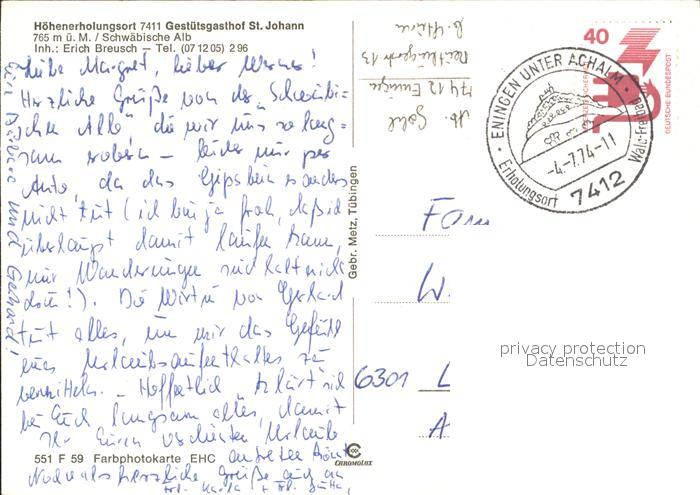 Höhenerholungsort 7411 Gestütsgasthof St. Johann
765 m ü. M. / Schwäbische Alb
Inh.: Erich Breusch — Tel. (07 12 05) 2 96
Liebe Margret, lieber Werner!
Herzliche Grüße von der „Schwäbi-
schen Alb", die wir uns so lang-
sam erobern – leider nur per
Auto, da das Gipsbein es anders
nicht tut (ich bin ja froh, daß ich
überhaupt damit laufen kann,
nur Wanderungen sind halt nicht
drin!). Die Wirtin von Gerhard
tut alles, um mir das Gefühl
eines Urlaubsaufenthaltes zu
vermitteln. – Hoffentlich klärt sich
bei Euch langsam alles, damit
Ihr Euren Urlaub
antreten könnt
Nochmals herzliche Grüße auch an
Eure Barbara und Gerhard!
551 F 59 Farbphotokarte EHC
CHROMOLUX
Gebr. Metz, Tübingen
7412 Eningen
40
DEUTSCHE BUNDESPOST
ENINGEN UNTER ACHALM
-4.-7.74-11
Erholungsort
7412
Fam
W.
6301 L
A
privacy protection
Datenschutz